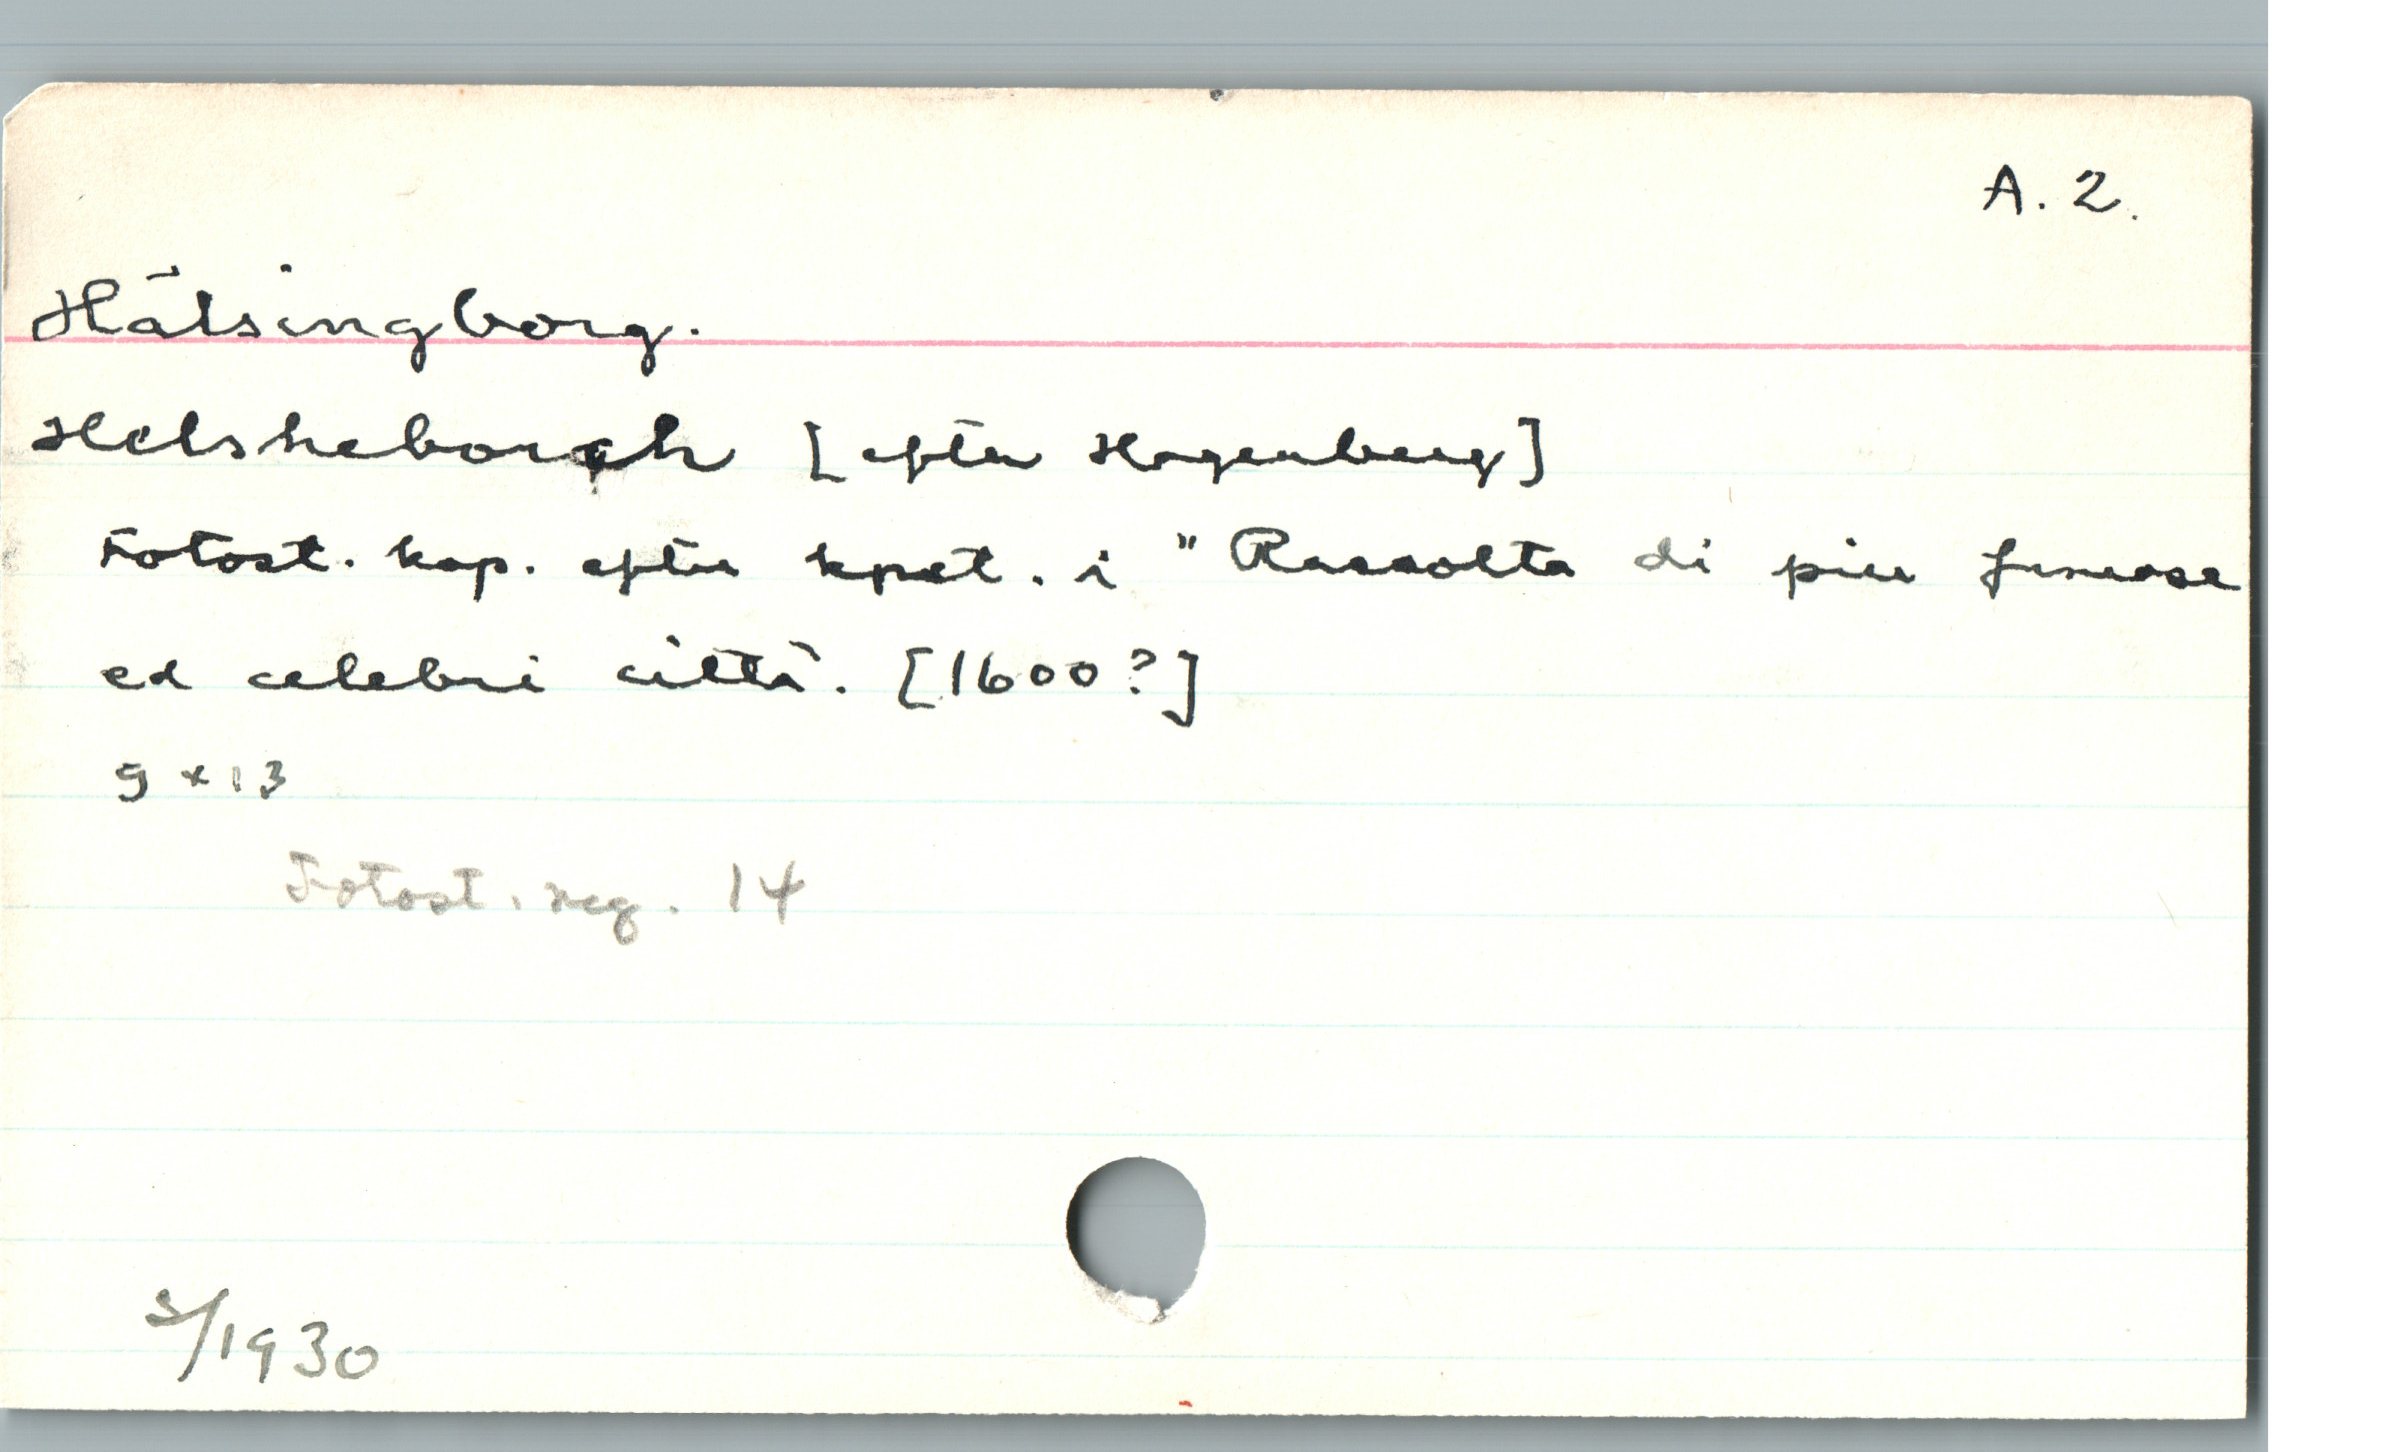 A. 2.
Hälsingborg.
Helsheborgh [efter Hogenberg]
Fotost. kop. efter kpst. i "Raccolta di piu famose
ed celebri città. [1600?]
9 x 13
Fotost. neg. 14
/1930